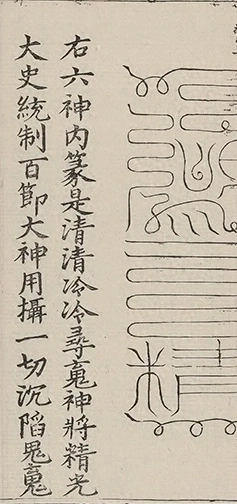 右六神内篆是清清冷冷尋䰟神將精光
大史統制百節大神用攝一切沉陷鬼䰟